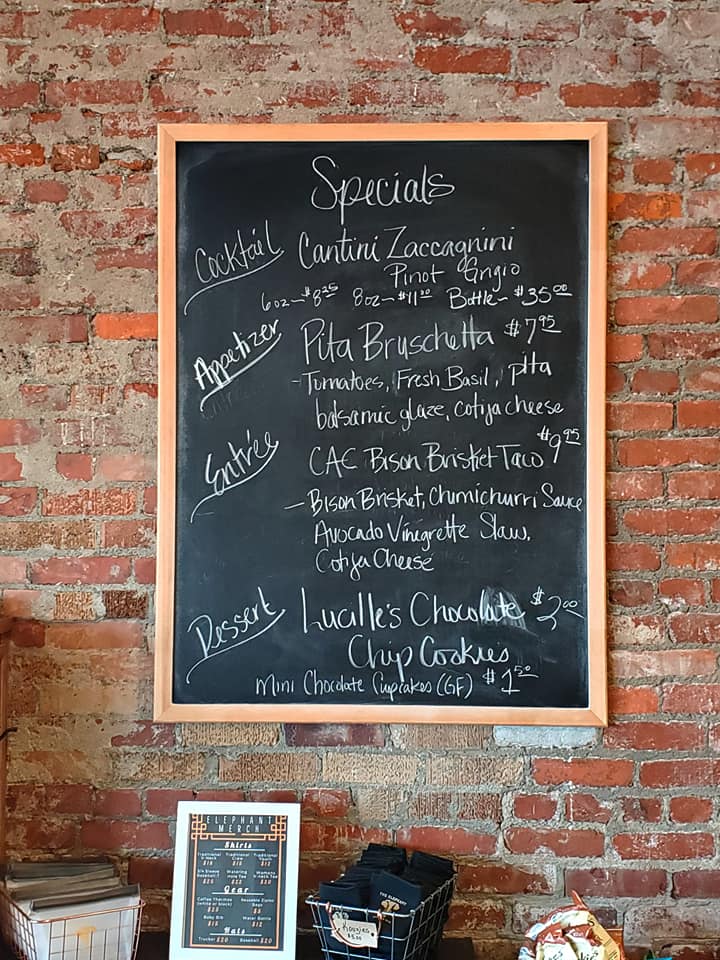 Specials
Cocktail Cantini Zaccagnini
Pinot Grigio
6oz~$8.25 8oz~$11.00 Bottle~$35.00
Appetizer Pita Bruschetta $7.95
-Tomatoes, Fresh Basil, pita
balsamic glaze, cotija cheese
Entrée CAC Bison Brisket Taco $9.95
-Bison Brisket, Chimichurri Sauce
Avocado Vinegrette Slaw,
Cotija Cheese
Dessert Lucille's Chocolate $2.00
Chip Cookies
Mini Chocolate Cupcakes (GF) $1.50
ELEPHANT
MERCH
Shirts
Traditional V-Neck Traditional Crew Traditional
Gear
Baby Bib
Hats
Trucker $20 Baseball $20
THE ELEPHANT
Koozies
$5.00